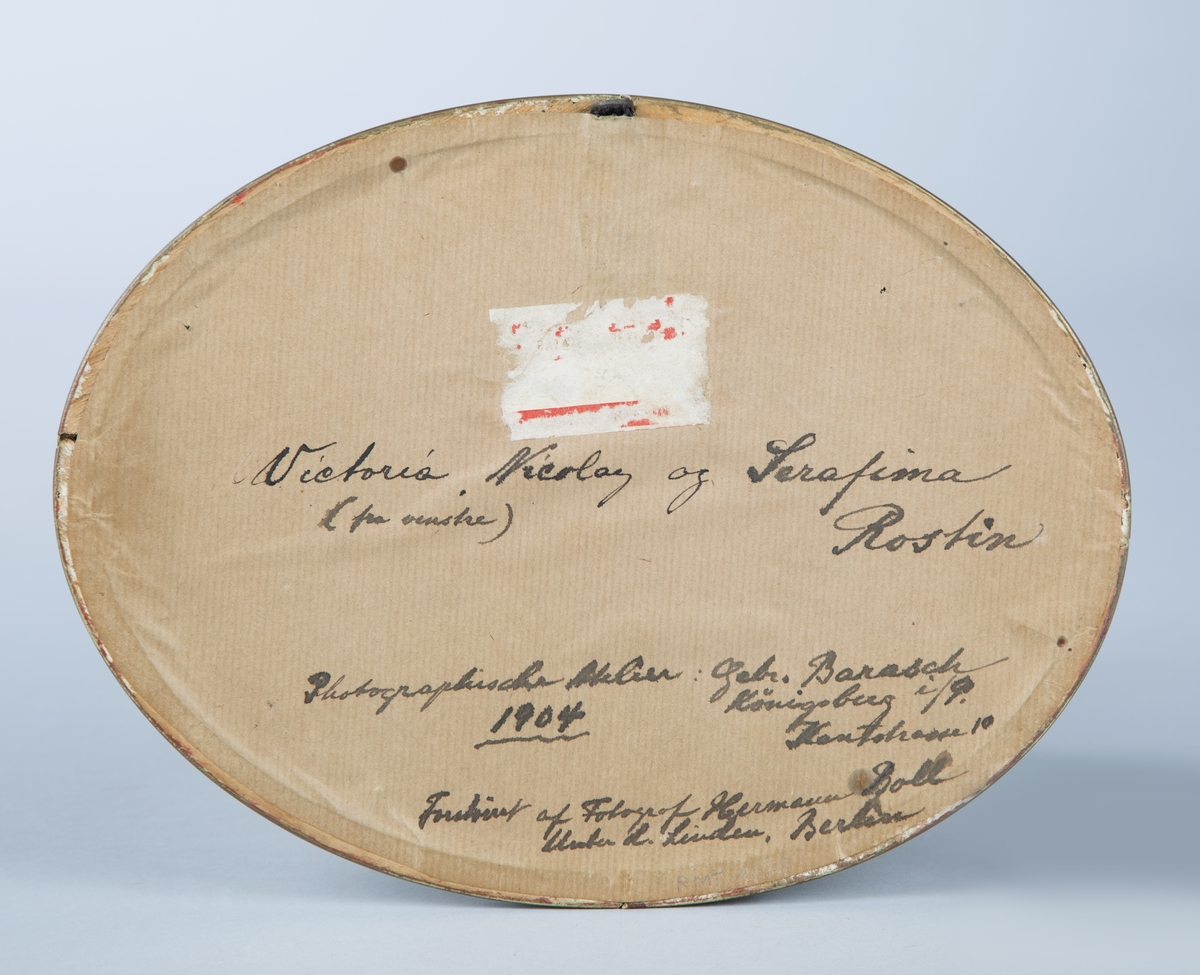 Victoria, Nicolay og Serafima
(fra venstre)
Rostin
Photographische Atelier : Gebr. Barasch
Königsberg i/P.
1904
Kantstrasse 10
af Fotograf Hermann Boll
Unter d. Linden, Berlin